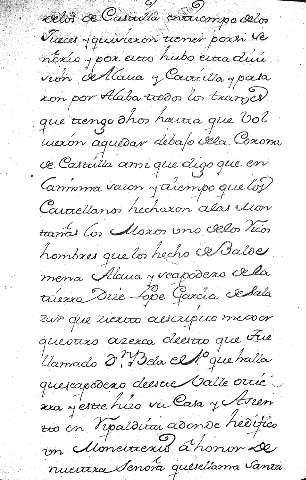 delos de Castilla entiempo delos
Juezes y quisieron tener porsi Se
ñorio y por esto hubo esta divi
sion de Alava y Castilla y pasa
ron por Alaba todos los tranzes
que tengo dhos hasta que bol
vieron aquedar debajo dela Corona
de Castilla ami que digo que en
la misma sazon y tiempo que los
Castellanos hecharon alas Mon
tañas los Moros uno delos Ricos
hombres que los hecho de Balde
mena Alava y seapodero de la
tierra Dize Lope Garcia de Sala
zar que siento aescripto mejor
queotro azerca deesto que fue
llamado Dn Vela el qe halla
queseapodero deeste Valle o tie
rra y este hizo su Casa y Asien
to en Respaldiza adonde hedifico
un Monesterio á honor de
nuestra Señora quesellama Santa